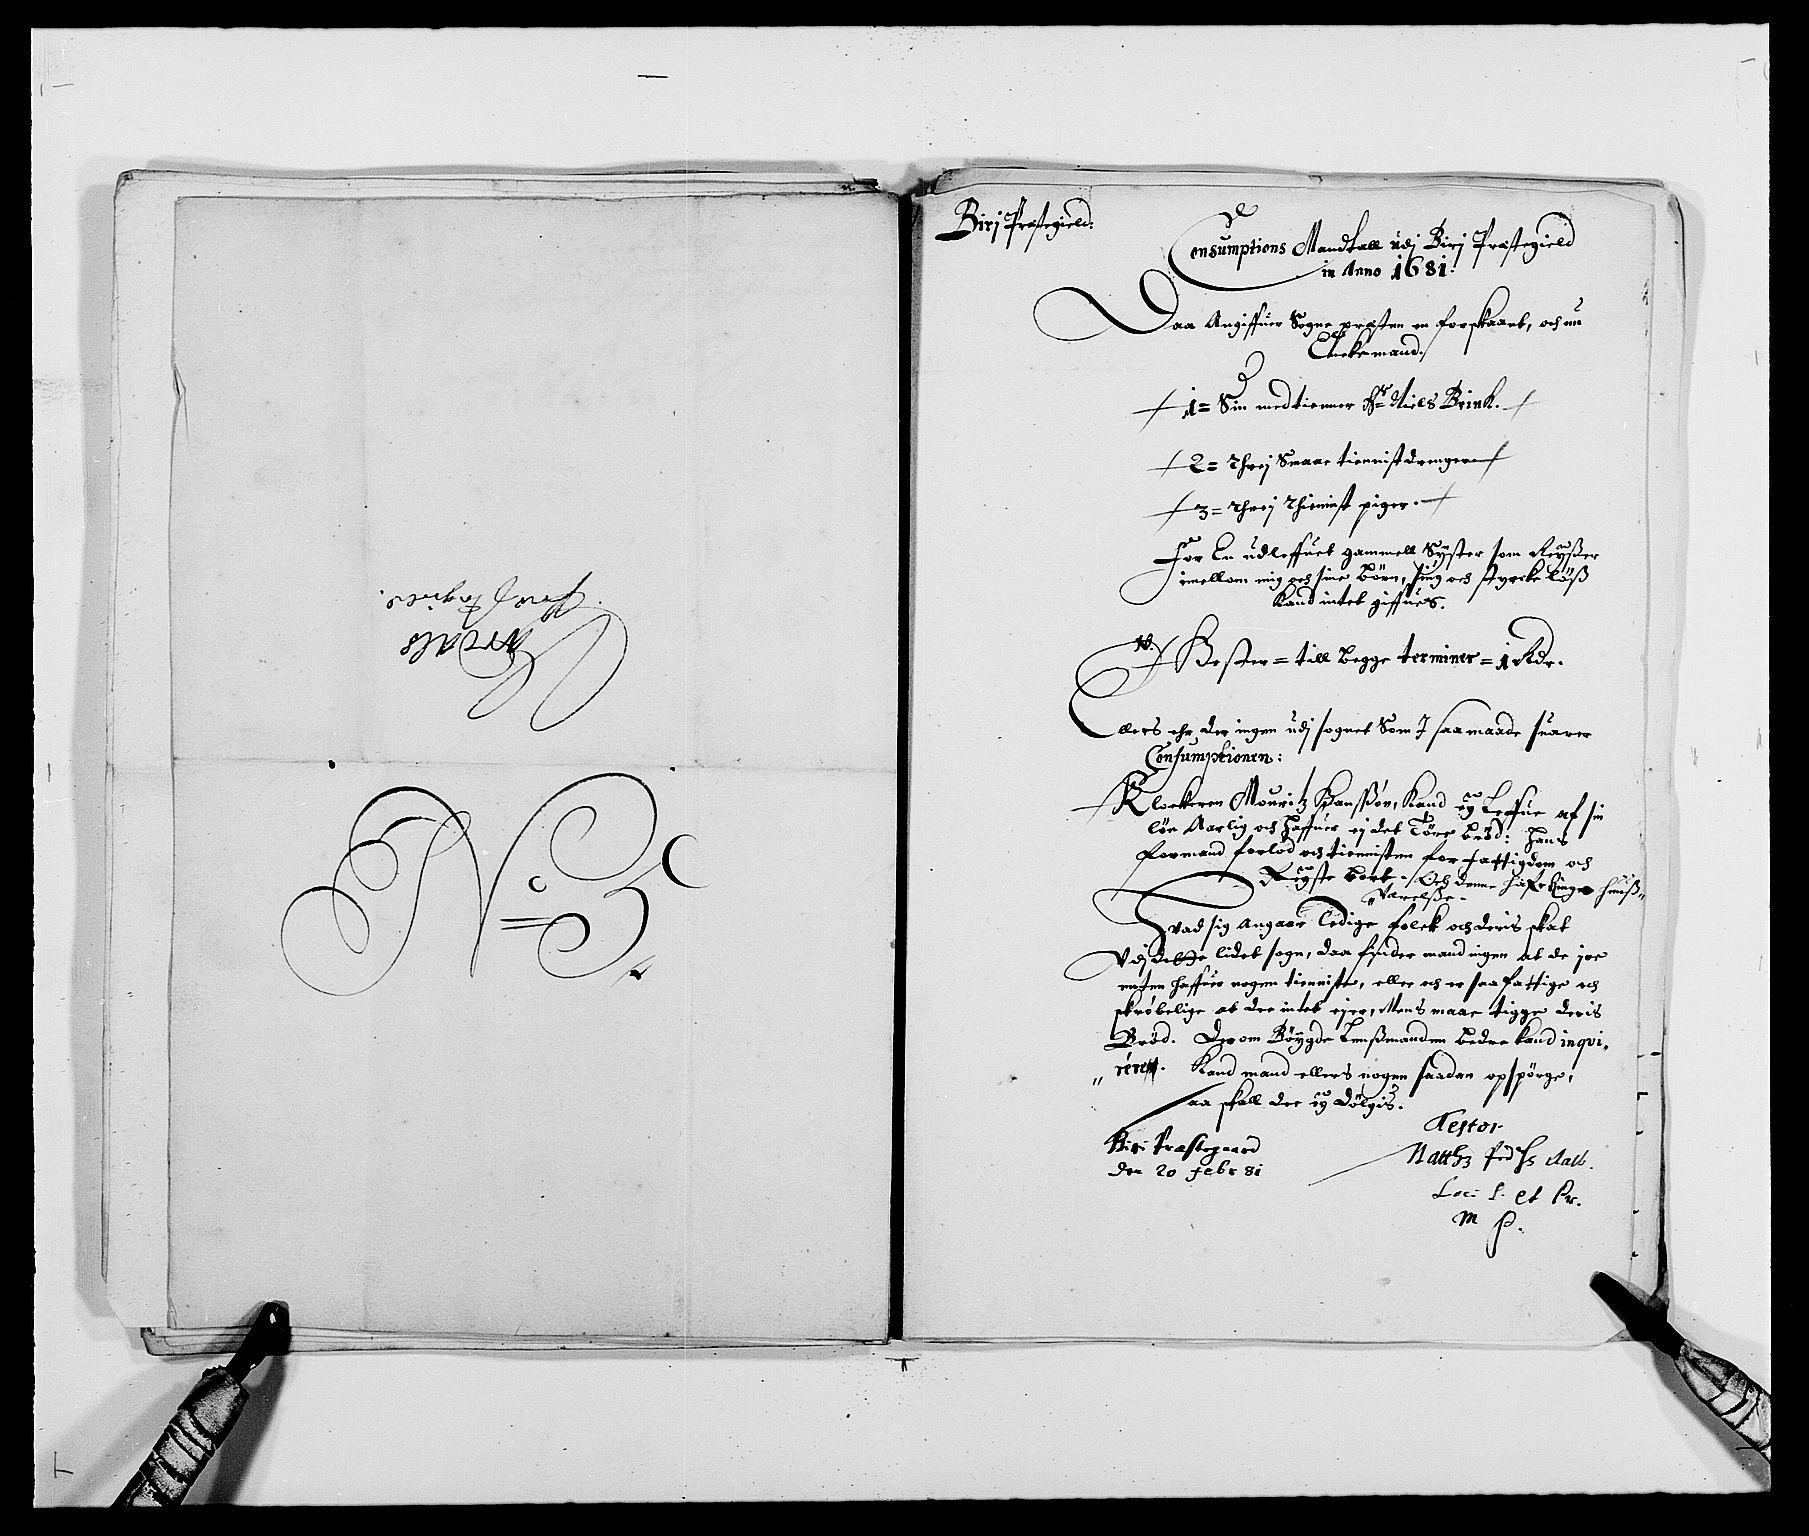 N: 3
Birj Præstegield:
Consumptions Mandtall udj Birj Præstegield
in Anno 1681.
Daa Angiffuer Sogne præsten en forskaart, och nu
Enckemand.
1= Sin medtienner Hr Niels Brink.
2= Threj Smaae tiennistdrenger
3= Threj Thiennist piger.
For En udleffuet gammell Syster som Reyßer
imellom mig och sine Börn, siug och styrcke löß
kand intet giffues.
4 Hester = till begge terminer = 1 Rdr.
Ellers ehr der ingen udj sognet Som J saa maade suarer
Consumptionen:
Klockeren Mouritz Hanssön, Kand ey Leffue af sin
lön Aarlig och haffuer ej det Töre bröd: hans
formand forlod och tiennisten for fattigdom och
Reyste bort. Och denne har inge huuß-
"Værelße.
Hvad sig angaar Ledige folck och deris skat
Vdj dette lidet sogn, daa finder mand ingen at de joe
enten haffuer nogen tienniste, eller och er saa fattige och
skröbelige at dee intet ejer, Mens maae tigge deris
Bröd. Der om Böygde Lenßmanden bedre kand inqvi,
" rére. Kand mand ellers nogen saadan opspörge,
saa skall dee ey dölgis.
Birj Præstegaard
den 20 febr 81
Testor
Matthz Peds
Loci P. et Pr.
M P.